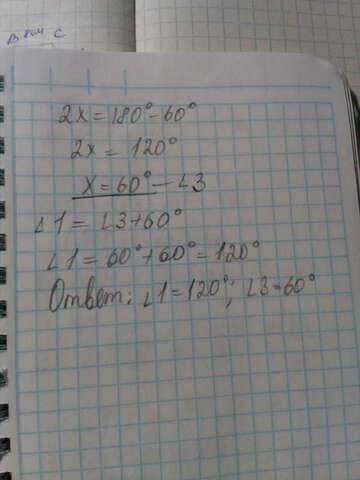 2x = 180° - 60°
2x = 120°
x = 60° - ∠3
∠1 = ∠3 + 60°
∠1 = 60° + 60° = 120°
Ответ: ∠1 = 120°; ∠3 = 60°